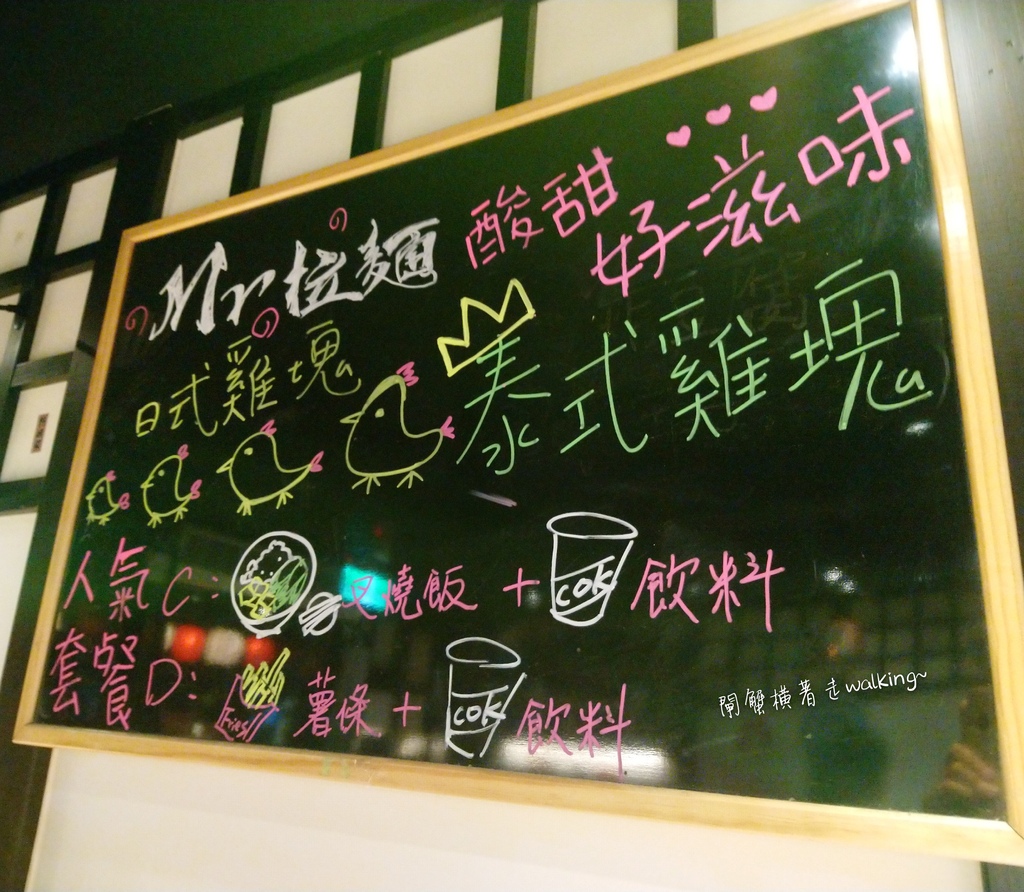 酸甜
好滋味
Mr拉麵
日式雞塊
泰式雞塊
人氣 C: 叉燒飯 + COK 飲料
套餐 D: fries 薯條 + COK 飲料
閙蟹橫著走walking~